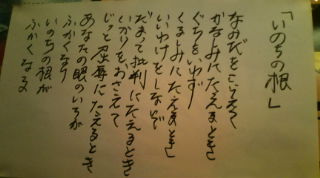 「いのちの根」
なみだをこらえて
かなしみにたえるとき
ぐちをいわずに
くるしみにたえるとき
いいわけをしないで
だまって批判にたえるとき
いかりをおさえて
じっと屈辱にたえるとき
あなたの眼のいろが
ふかくなり
いのちの根が
ふかくなる